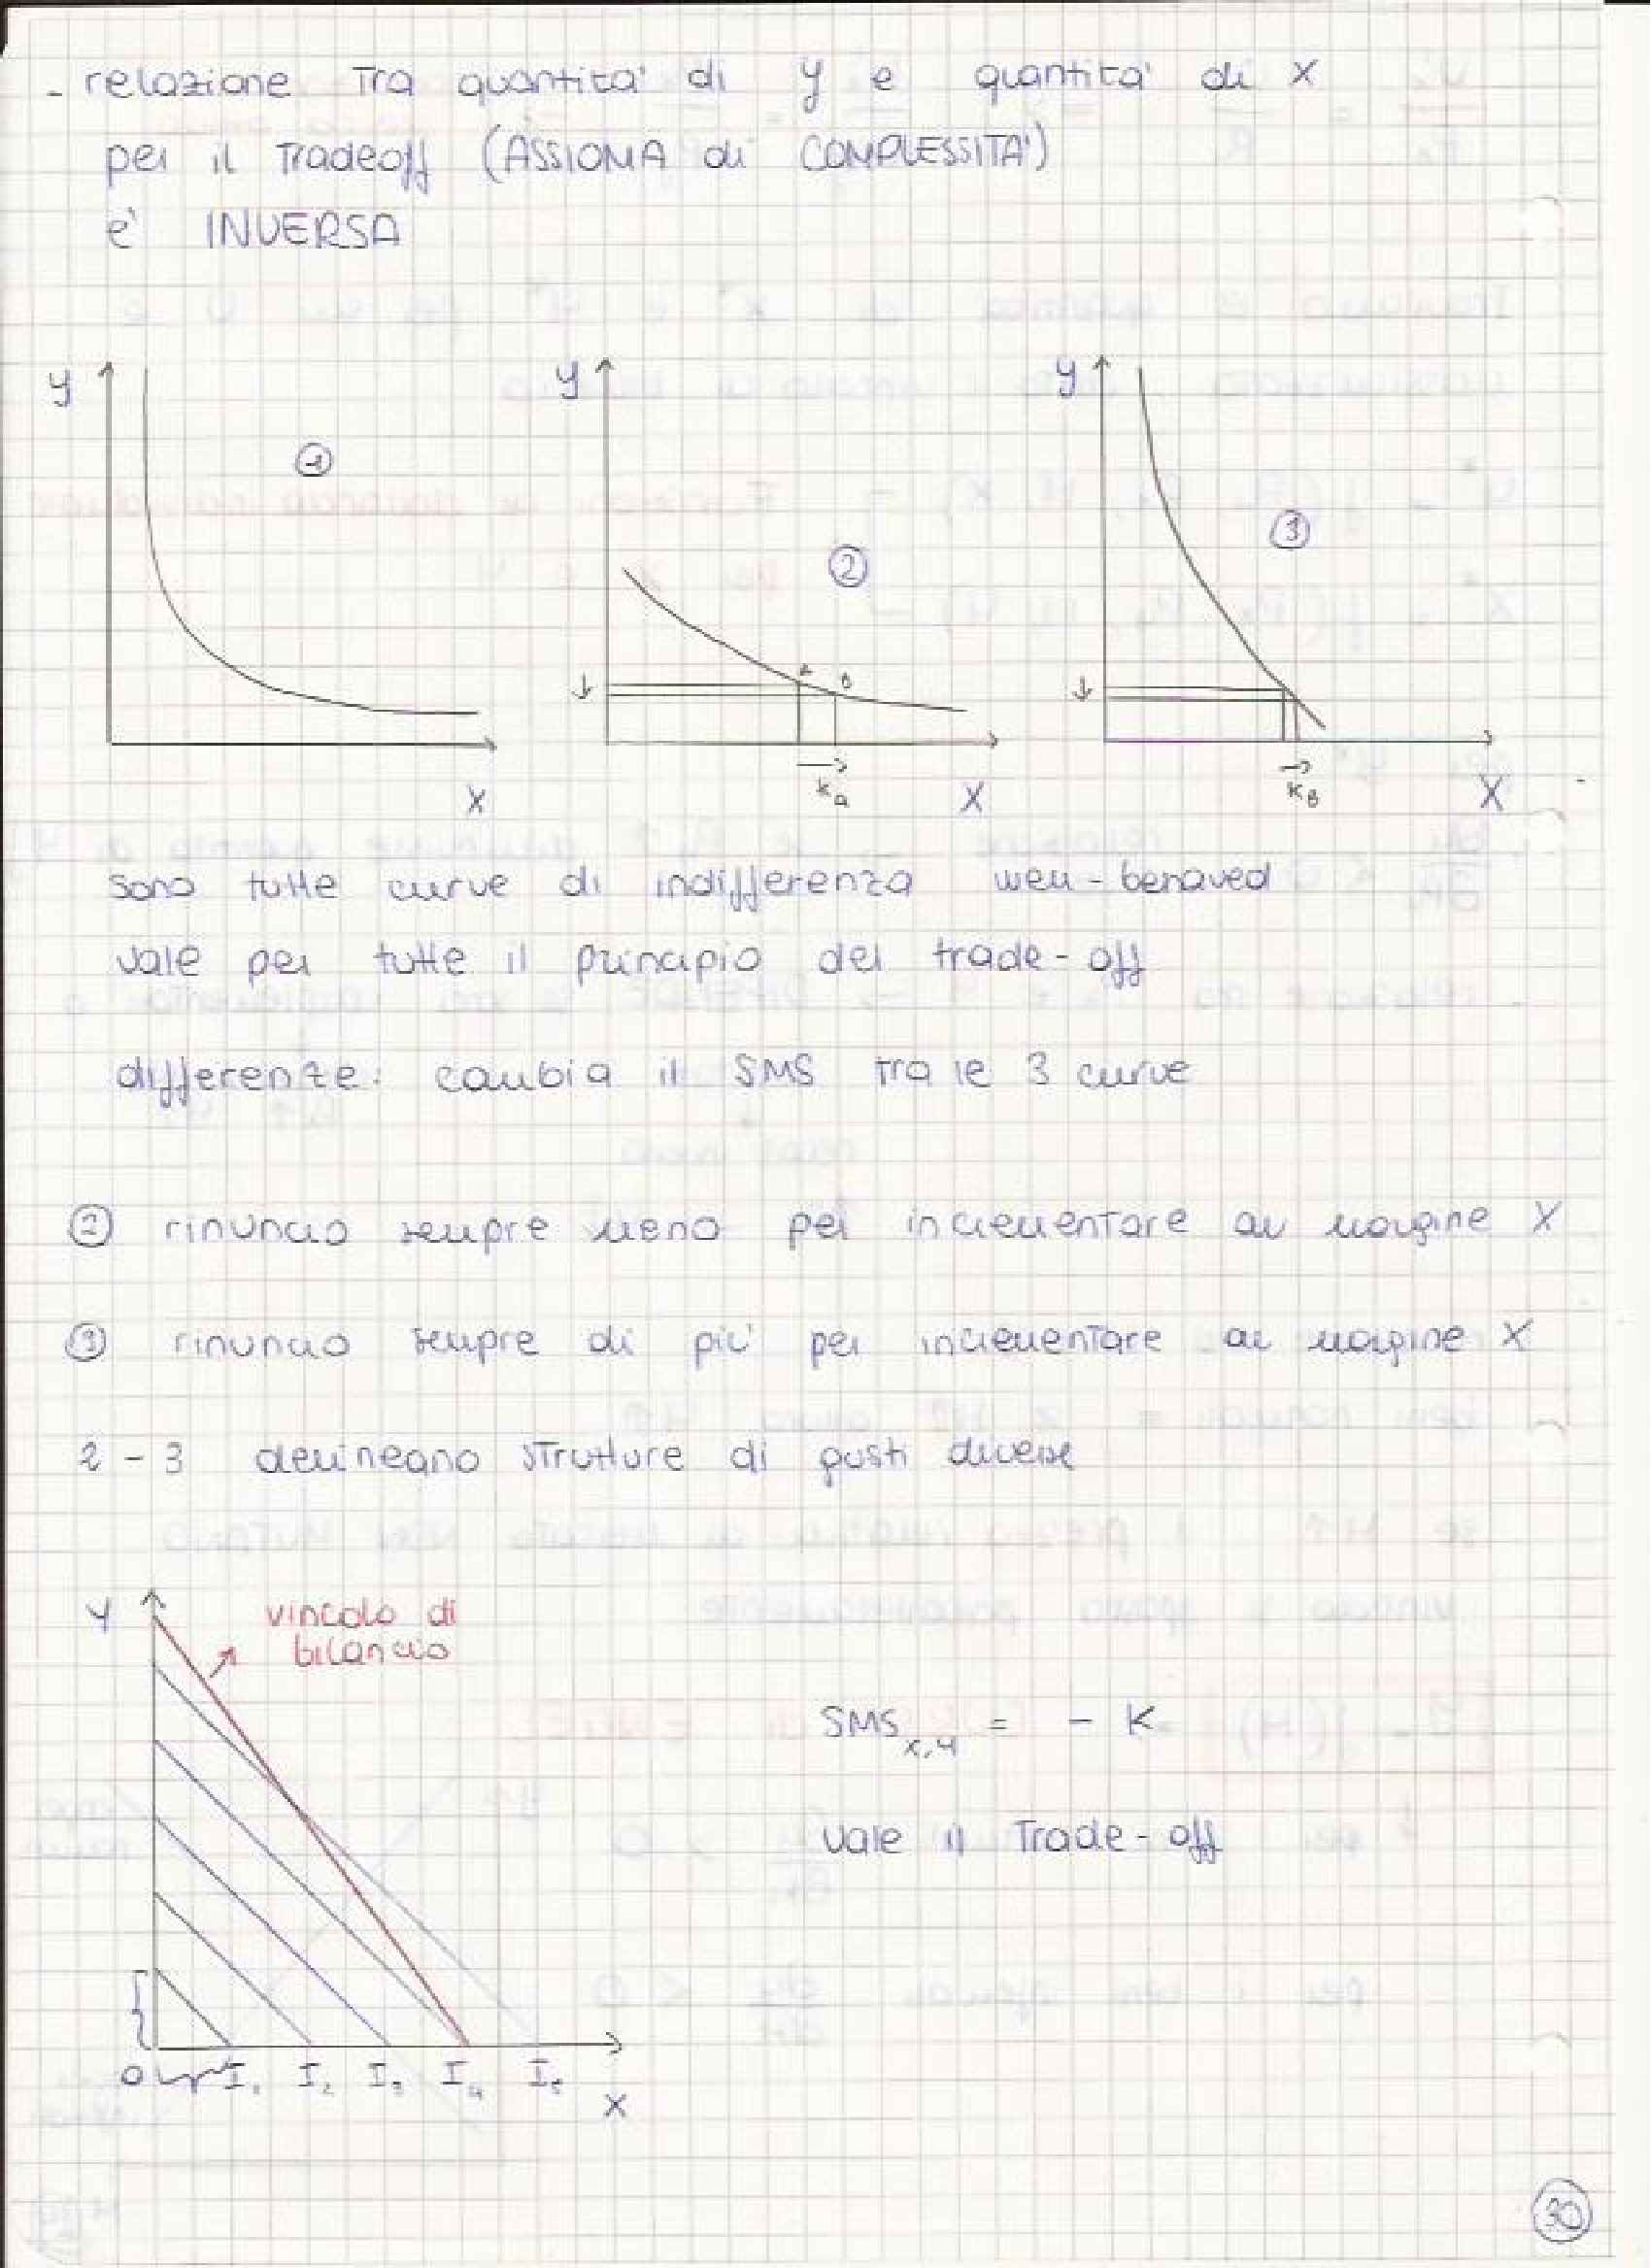 - relazione tra quantita' di y e quantita' di x
per il Tradeoff (ASSIOMA di COMPLESSITA')
e' INVERSA
y
1
x
y
2
A
B
ka
x
y
3
kB
x
sono tutte curve di indifferenza well-behaved
vale per tutte il principio del trade-off
differenze: cambia il SMS tra le 3 curve
2 rinuncio sempre meno per incrementare al margine X
3 rinuncio sempre di piu' per incrementare al margine X
2-3 delineano strutture di gusti diverse
y
vincolo di
bilancio
SMS x,y = - K
vale il Trade-off
O I1 I2 I3 I4 I5
x
30